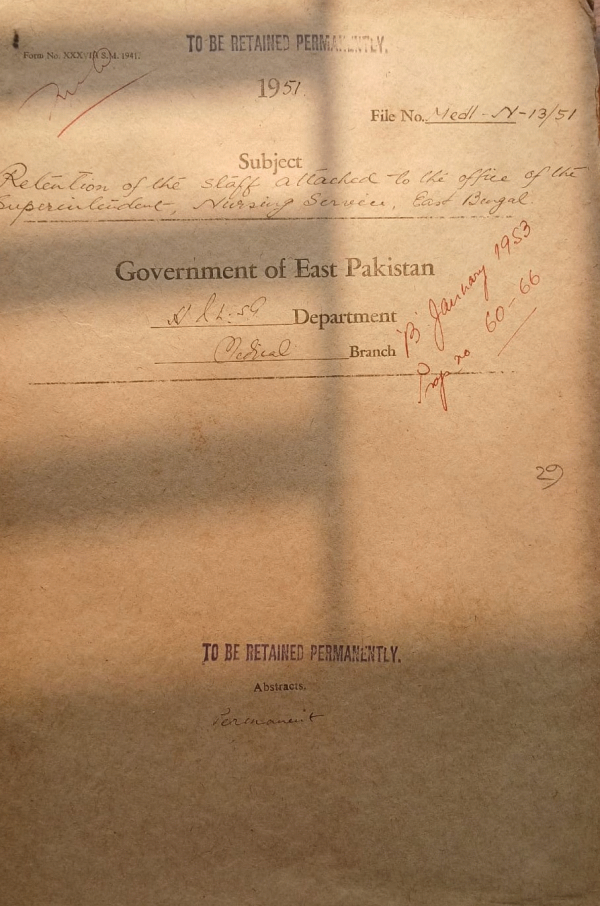 TO BE RETAINED PERMANENTLY.
Form No. XXXVIII S.M. 1941.
1951
File No. Medl-N-13/51
Subject
Retention of the staff attached to the office of the
Superintendent, Nursing Service, East Bengal
Government of East Pakistan
Department
Medical Branch
'B' January 1953
Prop no 60-66
29
TO BE RETAINED PERMANENTLY.
Abstracts.
Permanent